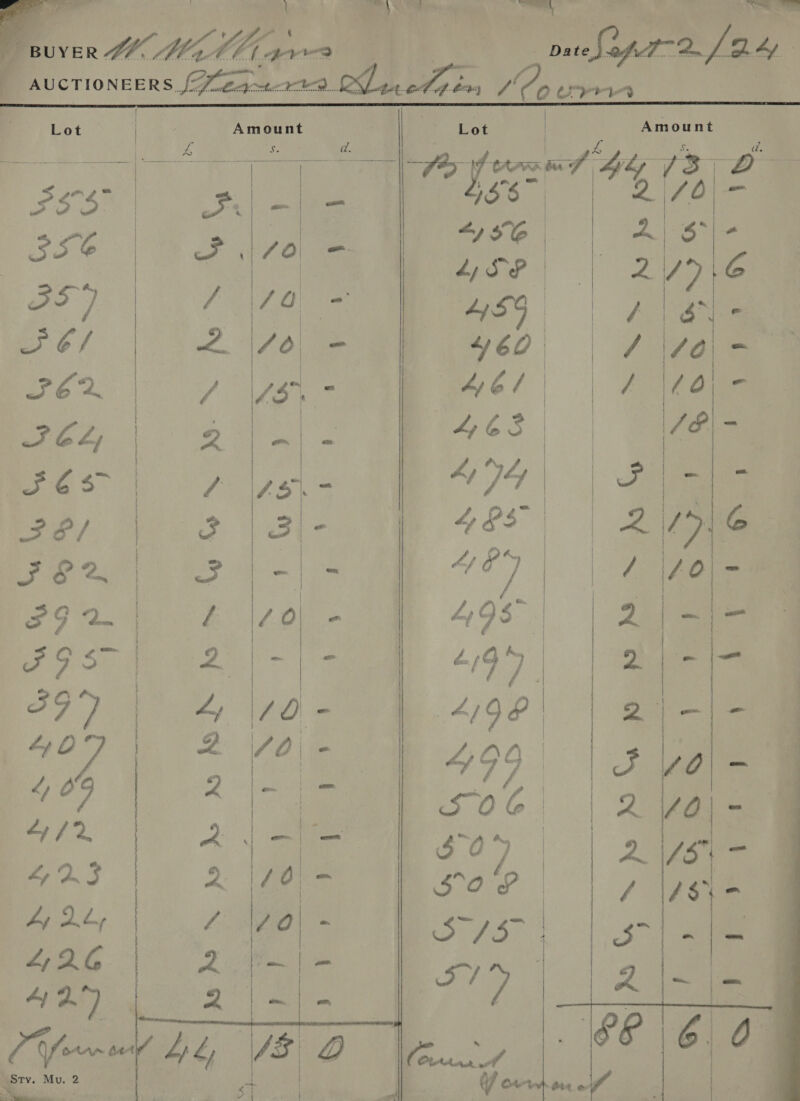 BUYER W. Williams Date Sept 2/24
AUCTIONEERS Stevens Auction Rooms
Lot Amount Lot Amount
£ s. d. £ s. d.
B Forward 44 13 0
355 3 - - 455 2 10 -
356 3 10 - 456 2 5 -
357 1 10 - 458 2 17 6
361 2 10 - 459 1 5 -
362 1 15 - 460 1 10 -
364 2 - - 461 1 10 -
365 1 15 - 463 18 -
381 3 3 - 474 3 - -
382 3 - - 485 2 17 6
392 1 10 - 487 1 10 -
395 2 - - 495 2 - -
397 4 10 - 497 2 - -
407 2 10 - 498 2 - -
409 2 - - 499 3 10 -
412 2 - - 506 2 10 -
423 2 10 - 507 2 15 -
424 1 10 - 508 1 15 -
426 2 - - 515 5 - -
427 2 - - 517 2 - -
Forward 44 13 0 88 6 0
Carried
Forward
Sty. Mu. 2